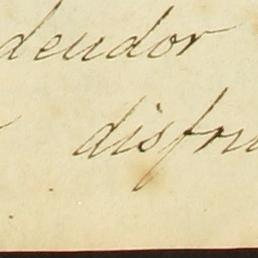 deudor
disfru